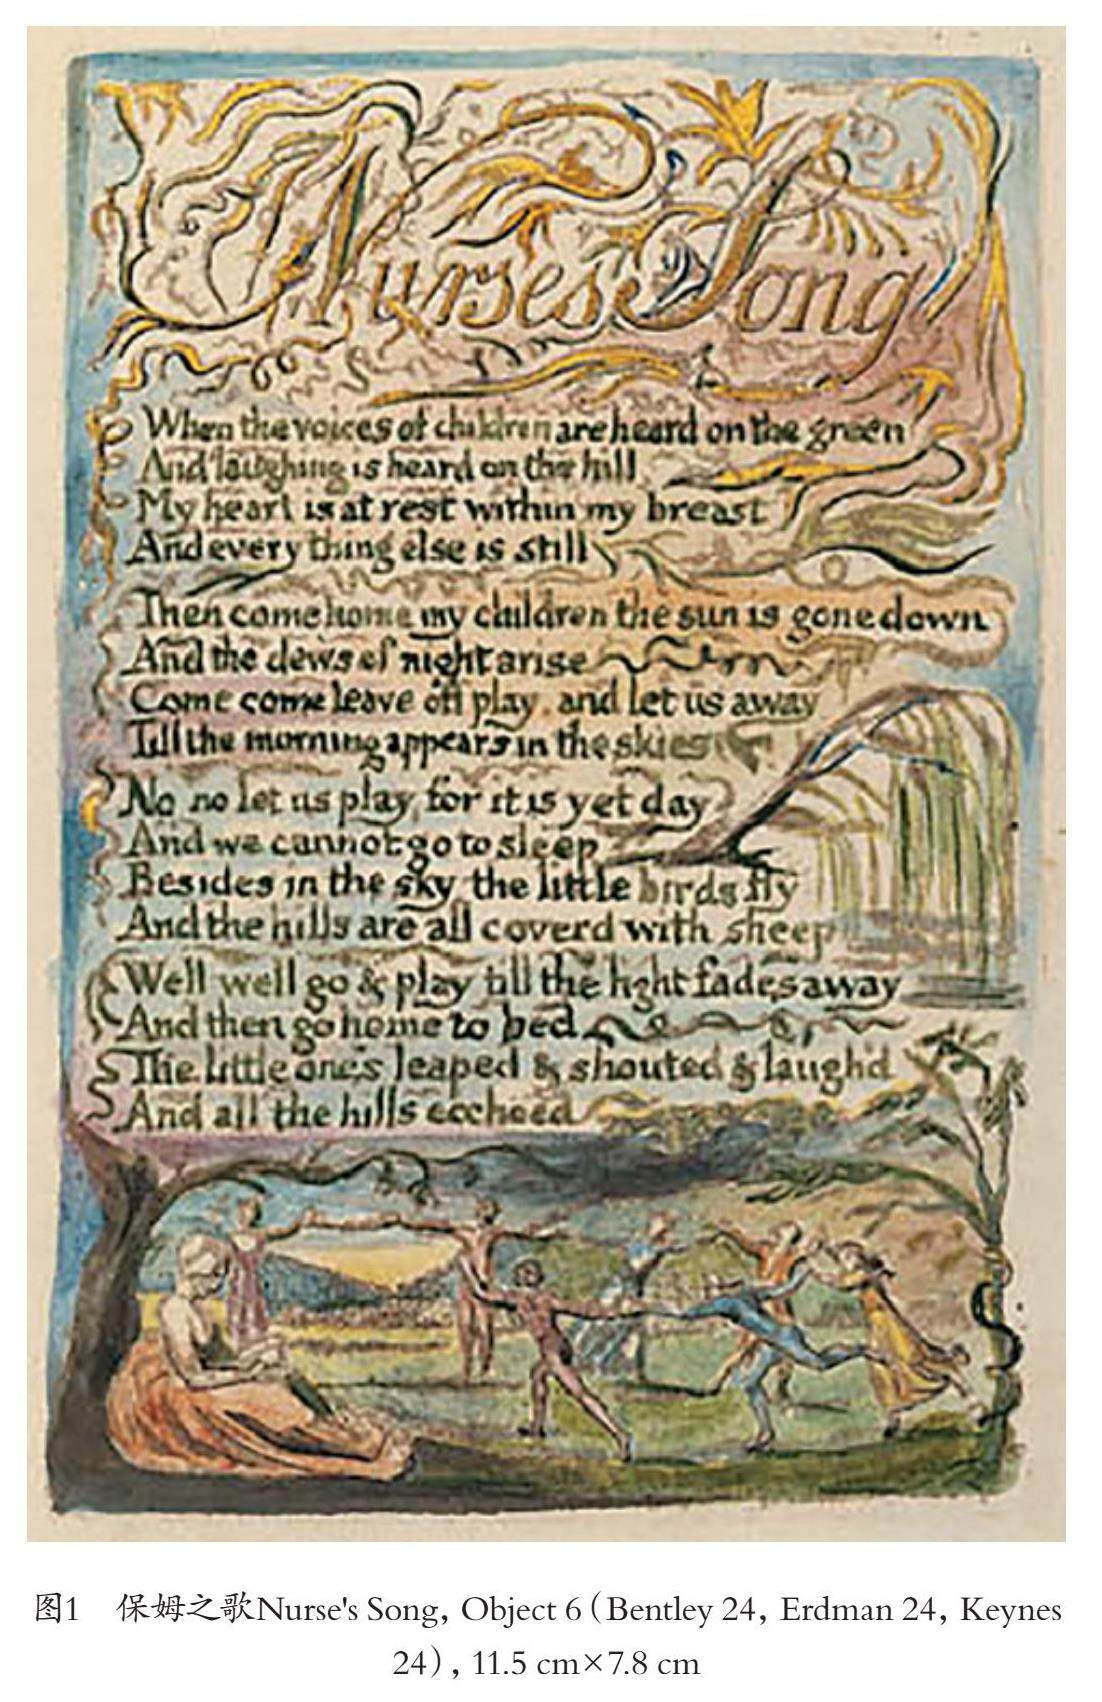 Nurses Song
When the voices of children are heard on the green
And laughing is heard on the hill
My heart is at rest within my breast
And every thing else is still
Then come home my children the sun is gone down
And the dews of night arise
Come come leave off play, and let us away
Till the morning appears in the skies
No no let us play, for it is yet day
And we cannot go to sleep
Besides in the sky, the little birds fly
And the hills are all coverd with sheep
Well well go & play till the light fades away
And then go home to bed
The little ones leaped & shouted & laugh'd
And all the hills ecchoed
图1 保姆之歌Nurse's Song, Object 6(Bentley 24, Erdman 24, Keynes
24), 11.5 cm×7.8 cm